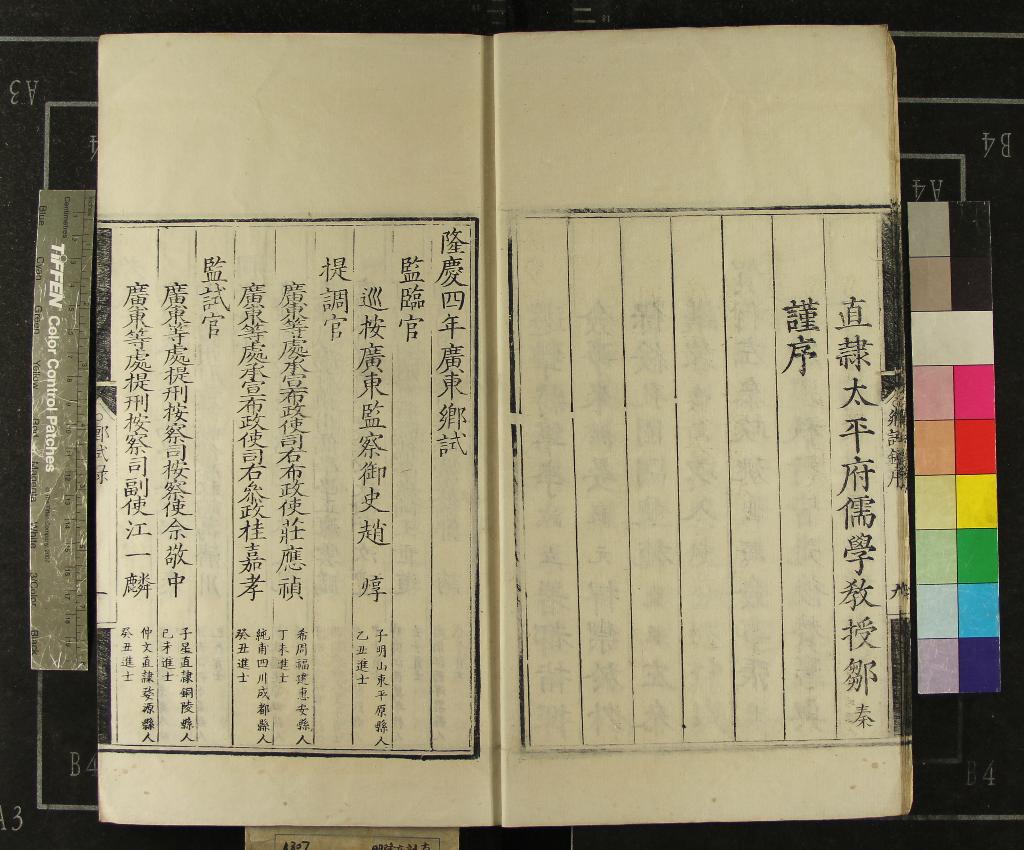 直隷太平府儒學教授鄒秦
謹序
隆慶四年廣東鄉試
監臨官
巡按廣東監察御史趙 焞
子明山東平原縣人
乙丑進士
提調官
廣東等處承宣布政使司右布政使莊應禎
希周福建惠安縣人
丁未進士
廣東等處承宣布政使司右叅政桂嘉孝
純甫四川成都縣人
癸丑進士
監試官
廣東等處提刑按察司按察使佘敬中
子星直隷銅陵縣人
己未進士
廣東等處提刑按察司副使江一麟
仲文直隷婺源縣人
癸丑進士
TIFFEN Color Control Patches
Centimetres
Blue
Green
Yellow
White
3/Color
Black
A3
B4
A4
B4
B4
A3